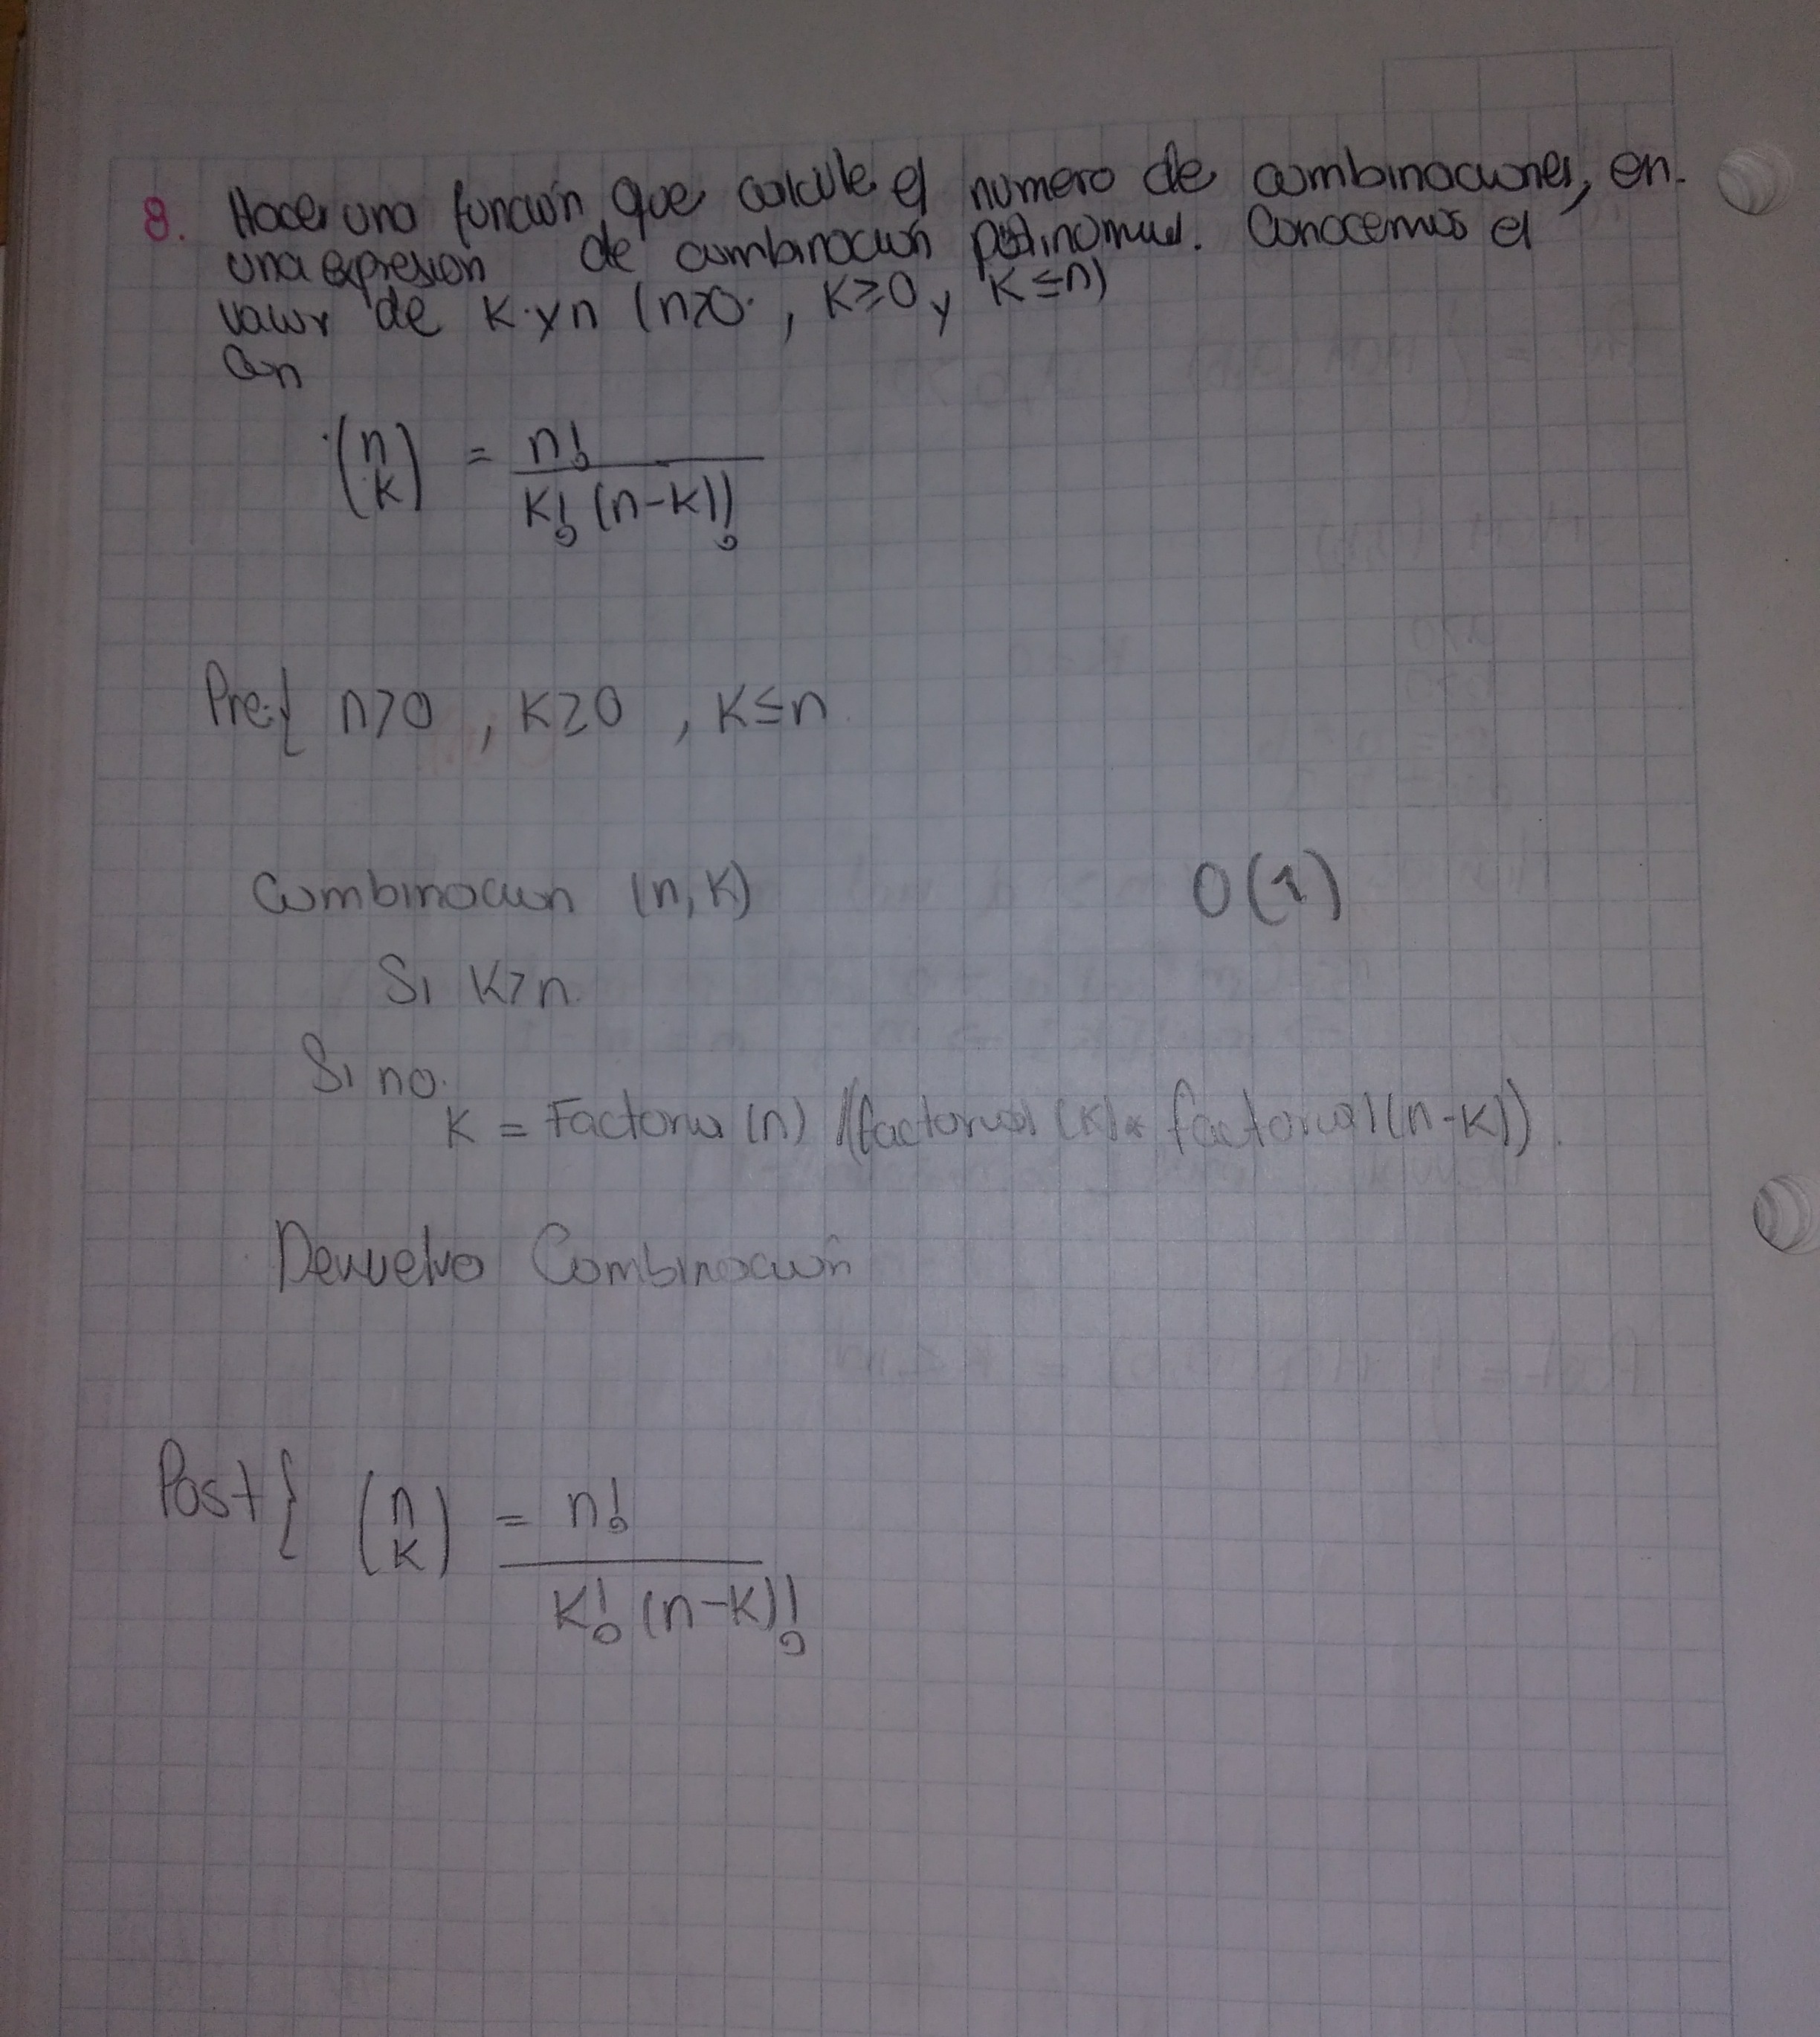 8. Hacer una función que calcule el numero de combinaciones, en
una expresion de combinación polinomial. Conocemos el
valor de K y n (n>0, K≥0 y K≤n)
Con
(n K) = n! / K! (n-K)!
Pre{ n>0 , K≥0 , K≤n
Combinacion (n,K) O(1)
Si K>n
Si no
K = Factorial (n) / (factorial (K) * factorial (n-K))
Devuelvo Combinación
Post} (n K) = n! / K! (n-K)!